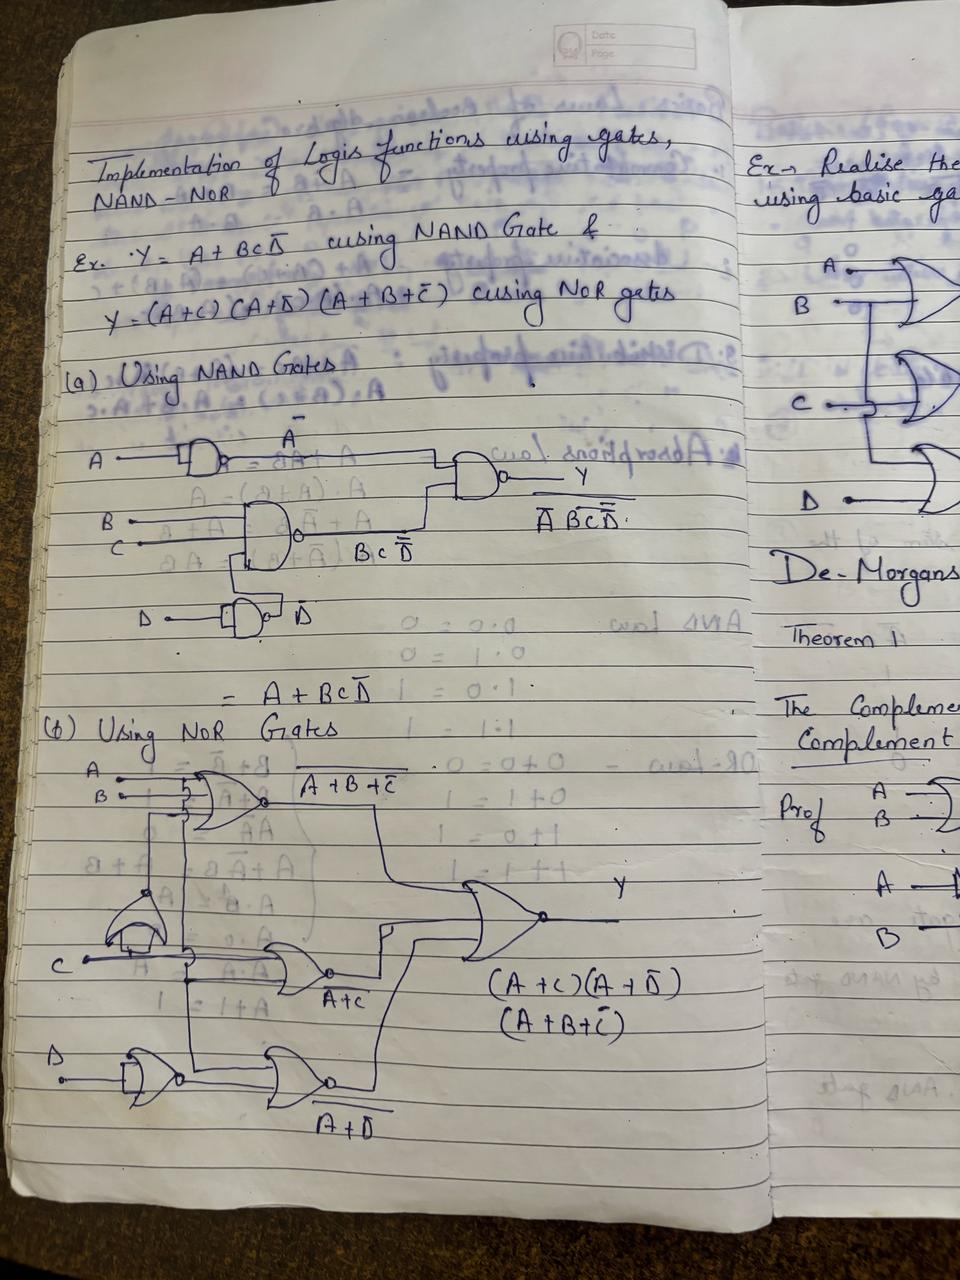 Date
Page
Implementation of Logis functions using gates,
NAND - NOR
Ex. Y = A + BCD̅ using NAND Gate &
Y = (A+C) (A+D̅) (A + B + C̅) using NOR gates
(a) Using NAND Gates
A
A̅
B
C
Y
D
D̅
= A + BCD̅
(b) Using NOR Gates
A
B
A + B + C̅
Y
C
A+C
(A + C) (A + D̅)
(A + B + C̅)
D
A + D̅
Ex→ Realise the
using basic ga
A
B
C
D
De-Morgans
Theorem 1
The Compleme
Complement
Prof
A
B
A
B